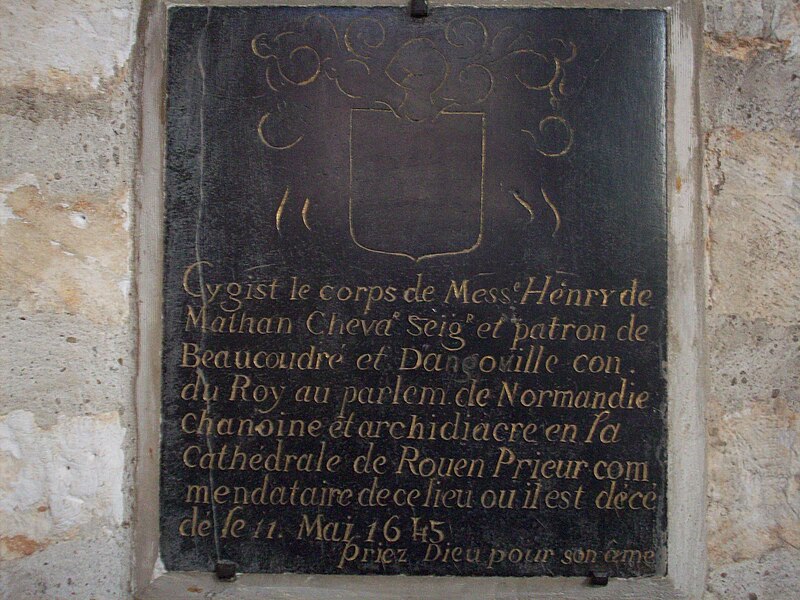 Cy gist le corps de Mess.e Henry de
Mathan Cheva.r Seig.r et patron de
Beaucoudré et Dangoville con.
du Roy au parlem. de Normandie
chanoine et archidiacre en la
Cathédrale de Rouen Prieur com
mendataire de ce lieu ou il est décé
dé le 11. Mai 1645
priez Dieu pour son ame